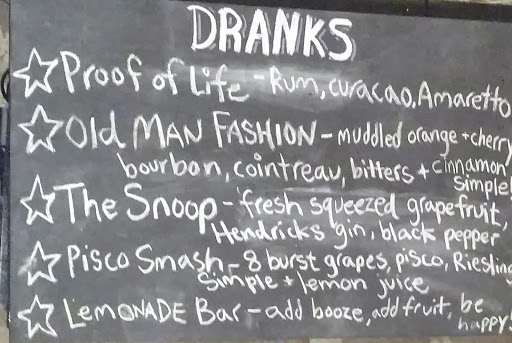 DRANKS
Proof of Life - Rum, curacao, Amaretto
Old MAN FASHION - muddled orange + cherry
bourbon, cointreau, bitters + cinnamon
simple!
The Snoop - fresh squeezed grapefruit,
Hendricks gin, black pepper
Pisco Smash - 8 burst grapes, pisco, Riesling
Simple + lemon juice
LEMONADE Bar - add booze, add fruit, be
happy!